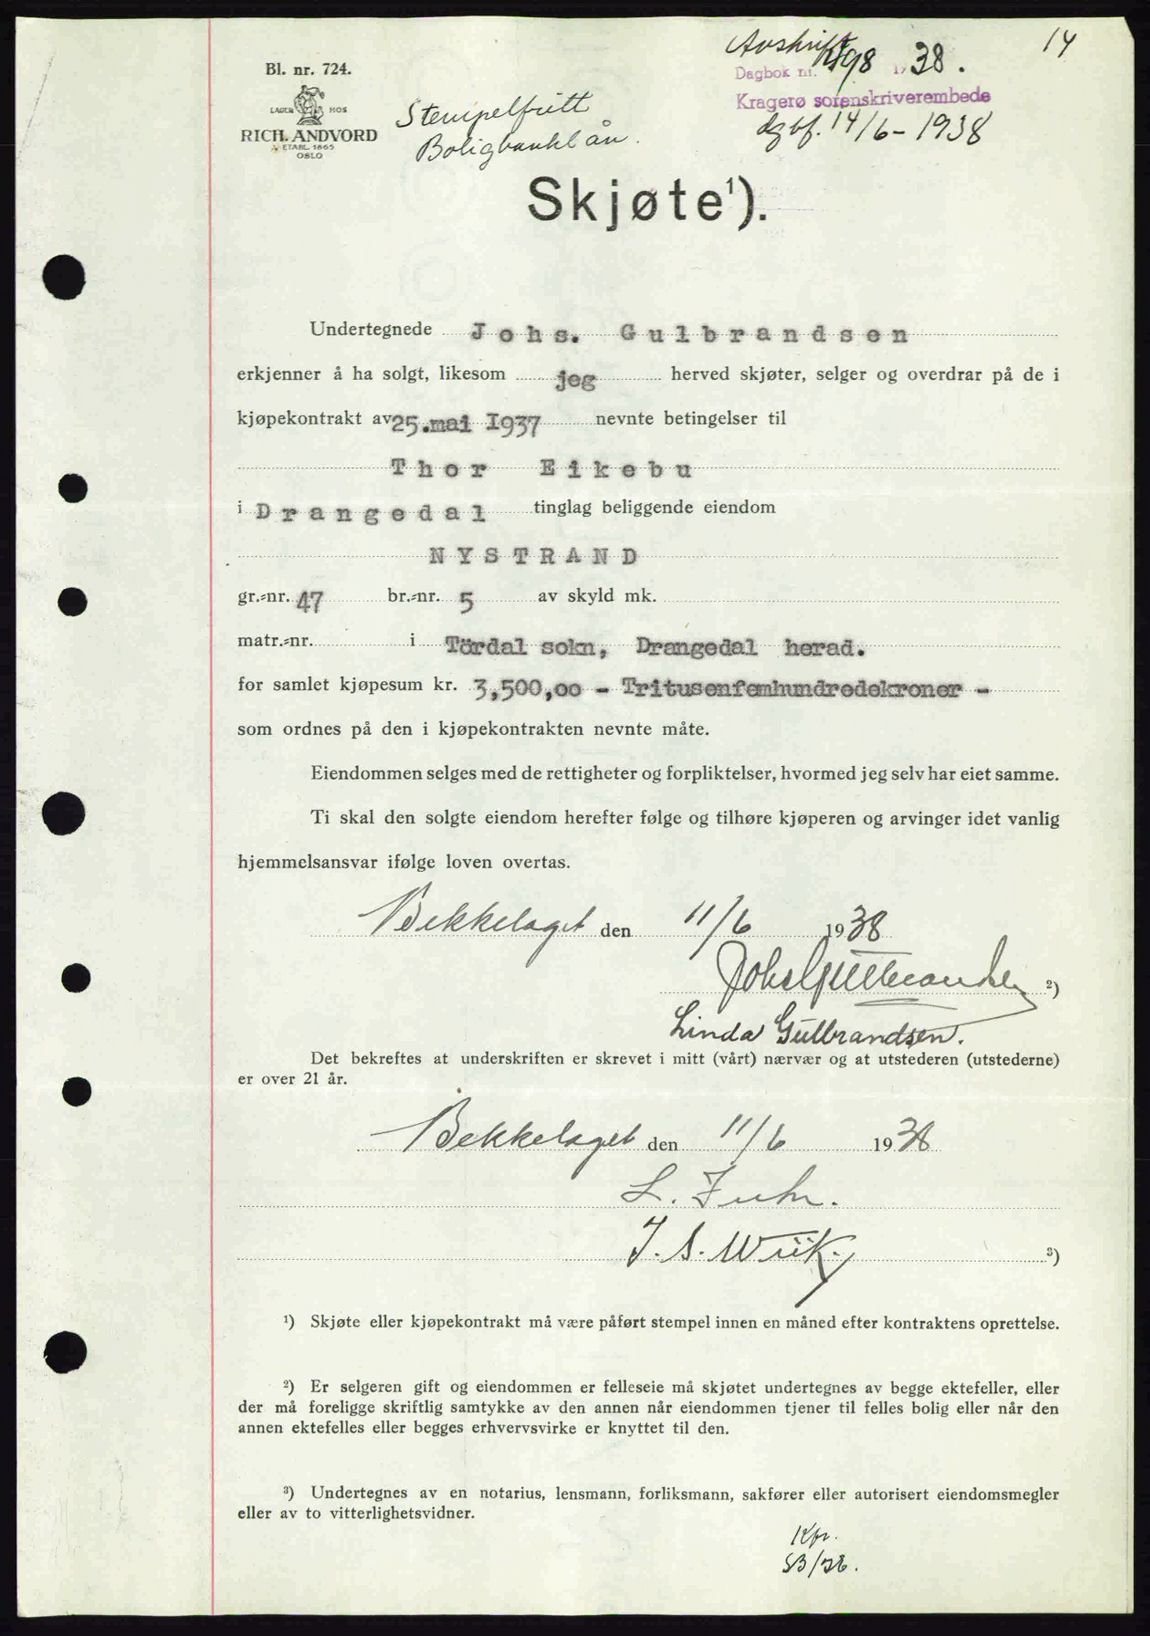 Avskrift
14
Bl. nr. 724.
Dagbok nr. 1938.
LAGER HOS
Stempelfritt
Kragerø sorenskriverembede
RICH. ANDVORD
dgbf. 14/6-1938
ETABL. 1865
Boligbanklån.
OSLO
Skjøte¹).
Undertegnede Johs. Gulbrandsen
erkjenner å ha solgt, likesom jeg herved skjøter, selger og overdrar på de i
kjøpekontrakt av 25.mai 1937 nevnte betingelser til
Thor Eikebu
i Drangedal tinglag beliggende eiendom
NYSTRAND
gr.-nr. 47 br.-nr. 5 av skyld mk.
matr.-nr. i Tördal sokn, Drangedal herad.
for samlet kjøpesum kr. 3,500,00 - Tritusenfemhundredekroner -
som ordnes på den i kjøpekontrakten nevnte måte.
Eiendommen selges med de rettigheter og forpliktelser, hvormed jeg selv har eiet samme.
Ti skal den solgte eiendom herefter følge og tilhøre kjøperen og arvinger idet vanlig
hjemmelsansvar ifølge loven overtas.
Bekkelaget den 11/6 1938
Johs Gulbrandsen ²)
Linda Gulbrandsen.
Det bekreftes at underskriften er skrevet i mitt (vårt) nærvær og at utstederen (utstederne)
er over 21 år.
Bekkelaget den 11/6 1938
L. Fuhr.
J. S. Wiik. ³)
¹) Skjøte eller kjøpekontrakt må være påført stempel innen en måned efter kontraktens oprettelse.
²) Er selgeren gift og eiendommen er felleseie må skjøtet undertegnes av begge ektefeller, eller
der må foreligge skriftlig samtykke av den annen når eiendommen tjener til felles bolig eller når den
annen ektefelles eller begges erhvervsvirke er knyttet til den.
³) Undertegnes av en notarius, lensmann, forliksmann, sakfører eller autorisert eiendomsmegler
eller av to vitterlighetsvidner.